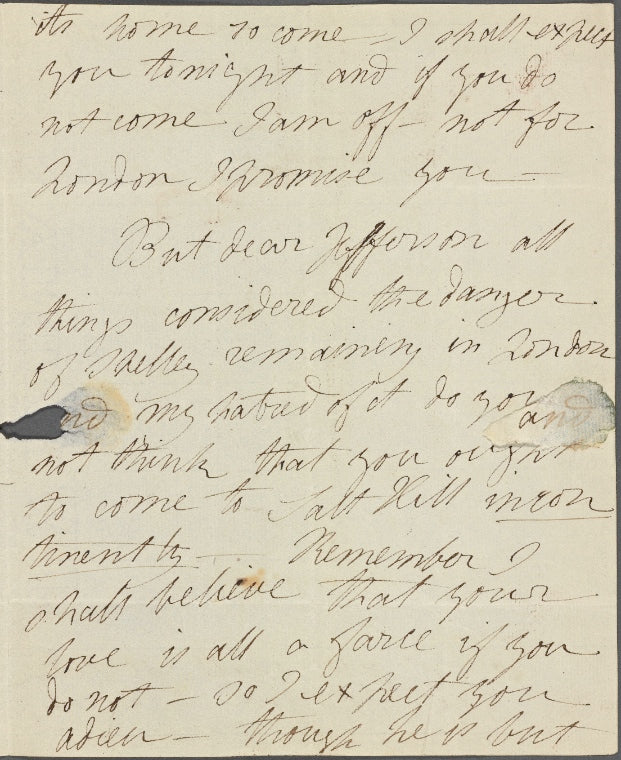 its home to come – I shall expect
you tonight and if you do
not come I am off – not for
London I promise you –
But dear Jefferson all
things considered the danger
of Shelley remaining in London
and my hatred of it do you and
not think that you ought
to come to Salt Hill incon
tinently – Remember I
shall believe that your
love is all a farce if you
do not – so I expect you
adieu – though he is but